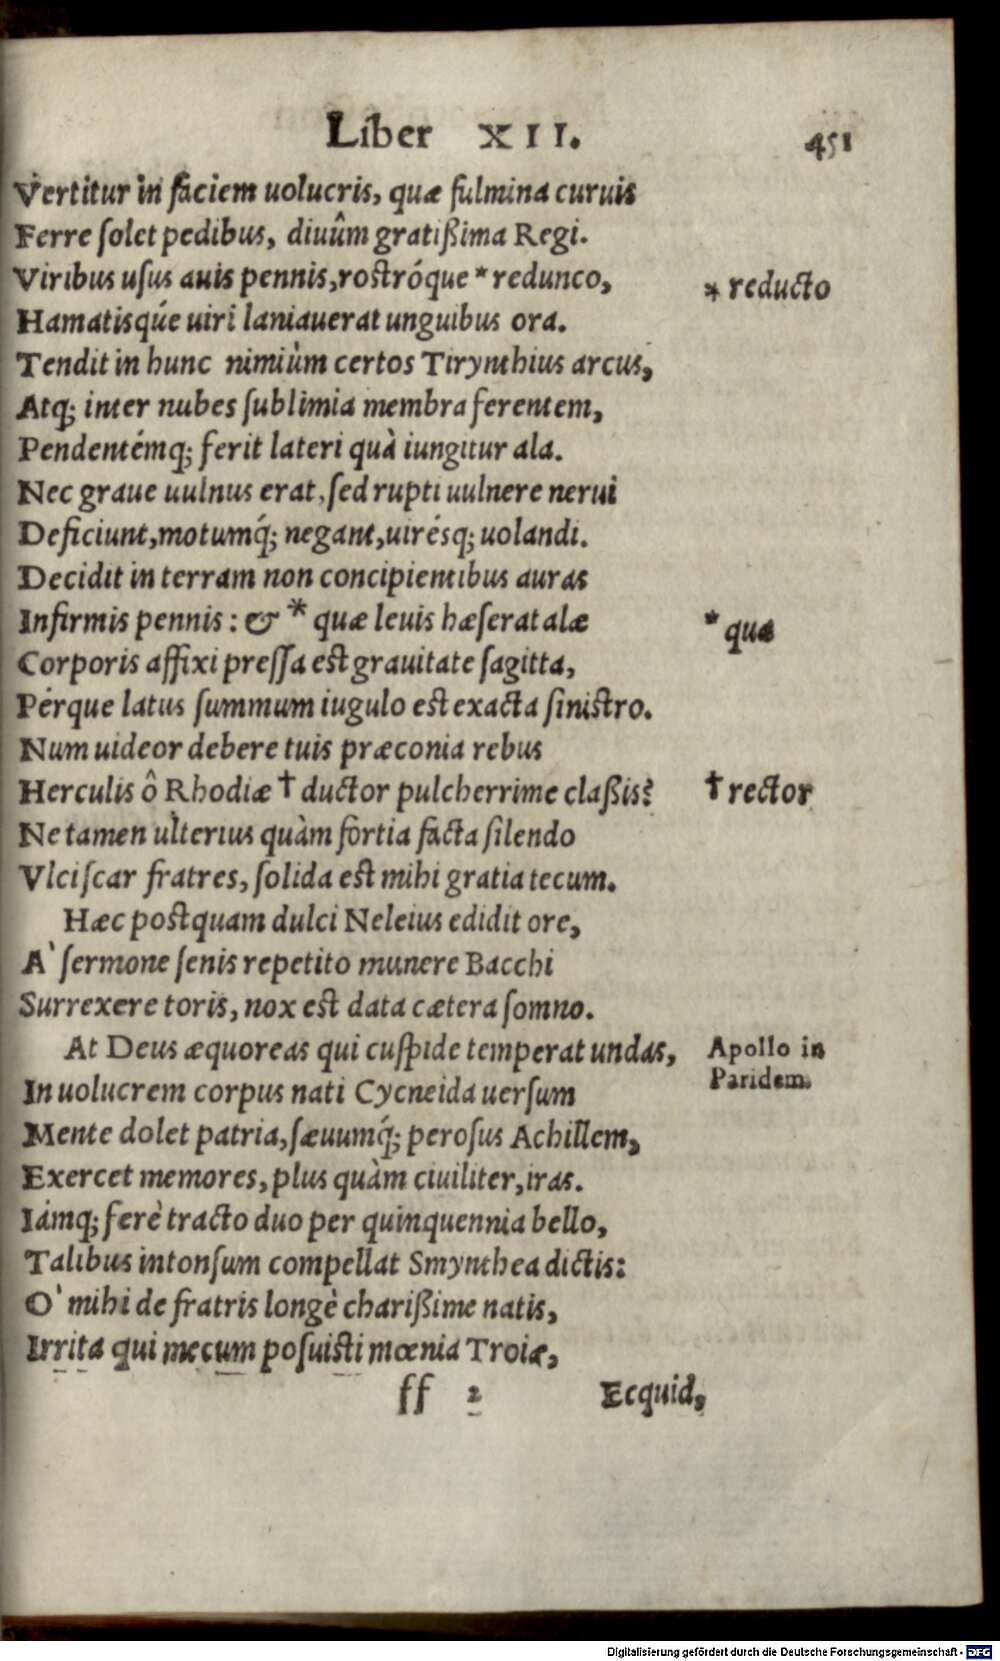 Liber XII. 451
Vertitur in faciem uolucris, quæ fulmina curuis
Ferre solet pedibus, diuûm gratißima Regi.
Viribus usus auis pennis, rostróque * redunco, * reducto
Hamatisqúe uiri laniauerat unguibus ora.
Tendit in hunc nimiùm certos Tirynthius arcus,
Atq; inter nubes sublimia membra ferentem,
Pendentémq; ferit lateri quà iungitur ala.
Nec graue uulnus erat, sed rupti uulnere nerui
Deficiunt, motumq́; negant, uirésq; uolandi.
Decidit in terram non concipientibus auras
Infirmis pennis: & * quæ leuis hæserat alæ * qua
Corporis affixi pressa est grauitate sagitta,
Pérque latus summum iugulo est exacta sinistro.
Num uideor debere tuis præconia rebus
Herculis ô Rhodiæ † ductor pulcherrime claßis? † rector
Ne tamen ulterius quàm fortia facta silendo
Vlciscar fratres, solida est mihi gratia tecum.
Hæc postquam dulci Neleius edidit ore,
A` sermone senis repetito munere Bacchi
Surrexere toris, nox est data cætera somno.
At Deus æquoreas qui cuspide temperat undas, Apollo in
Paridem.
In uolucrem corpus nati Cycneida uersum
Mente dolet patria, sæuumq́; perosus Achillem,
Exercet memores, plus quàm ciuiliter, iras.
Iámq; ferè tracto duo per quinquennia bello,
Talibus intonsum compellat Smynthea dictis:
O` mihi de fratris longè charißime natis,
Irrita qui mecum posuisti mœnia Troiæ,
ff 2 Ecquid,
Digitalisierung gefördert durch die Deutsche Forschungsgemeinschaft - DFG